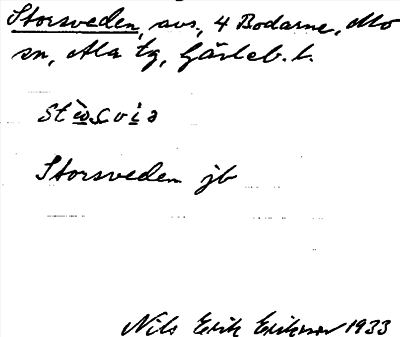 Storsveden, avs, 4 Bodarne, Mo
sn, Ala tg, Gävleb. l.
Storsveden jb
Nils Erik Eriksson 1933